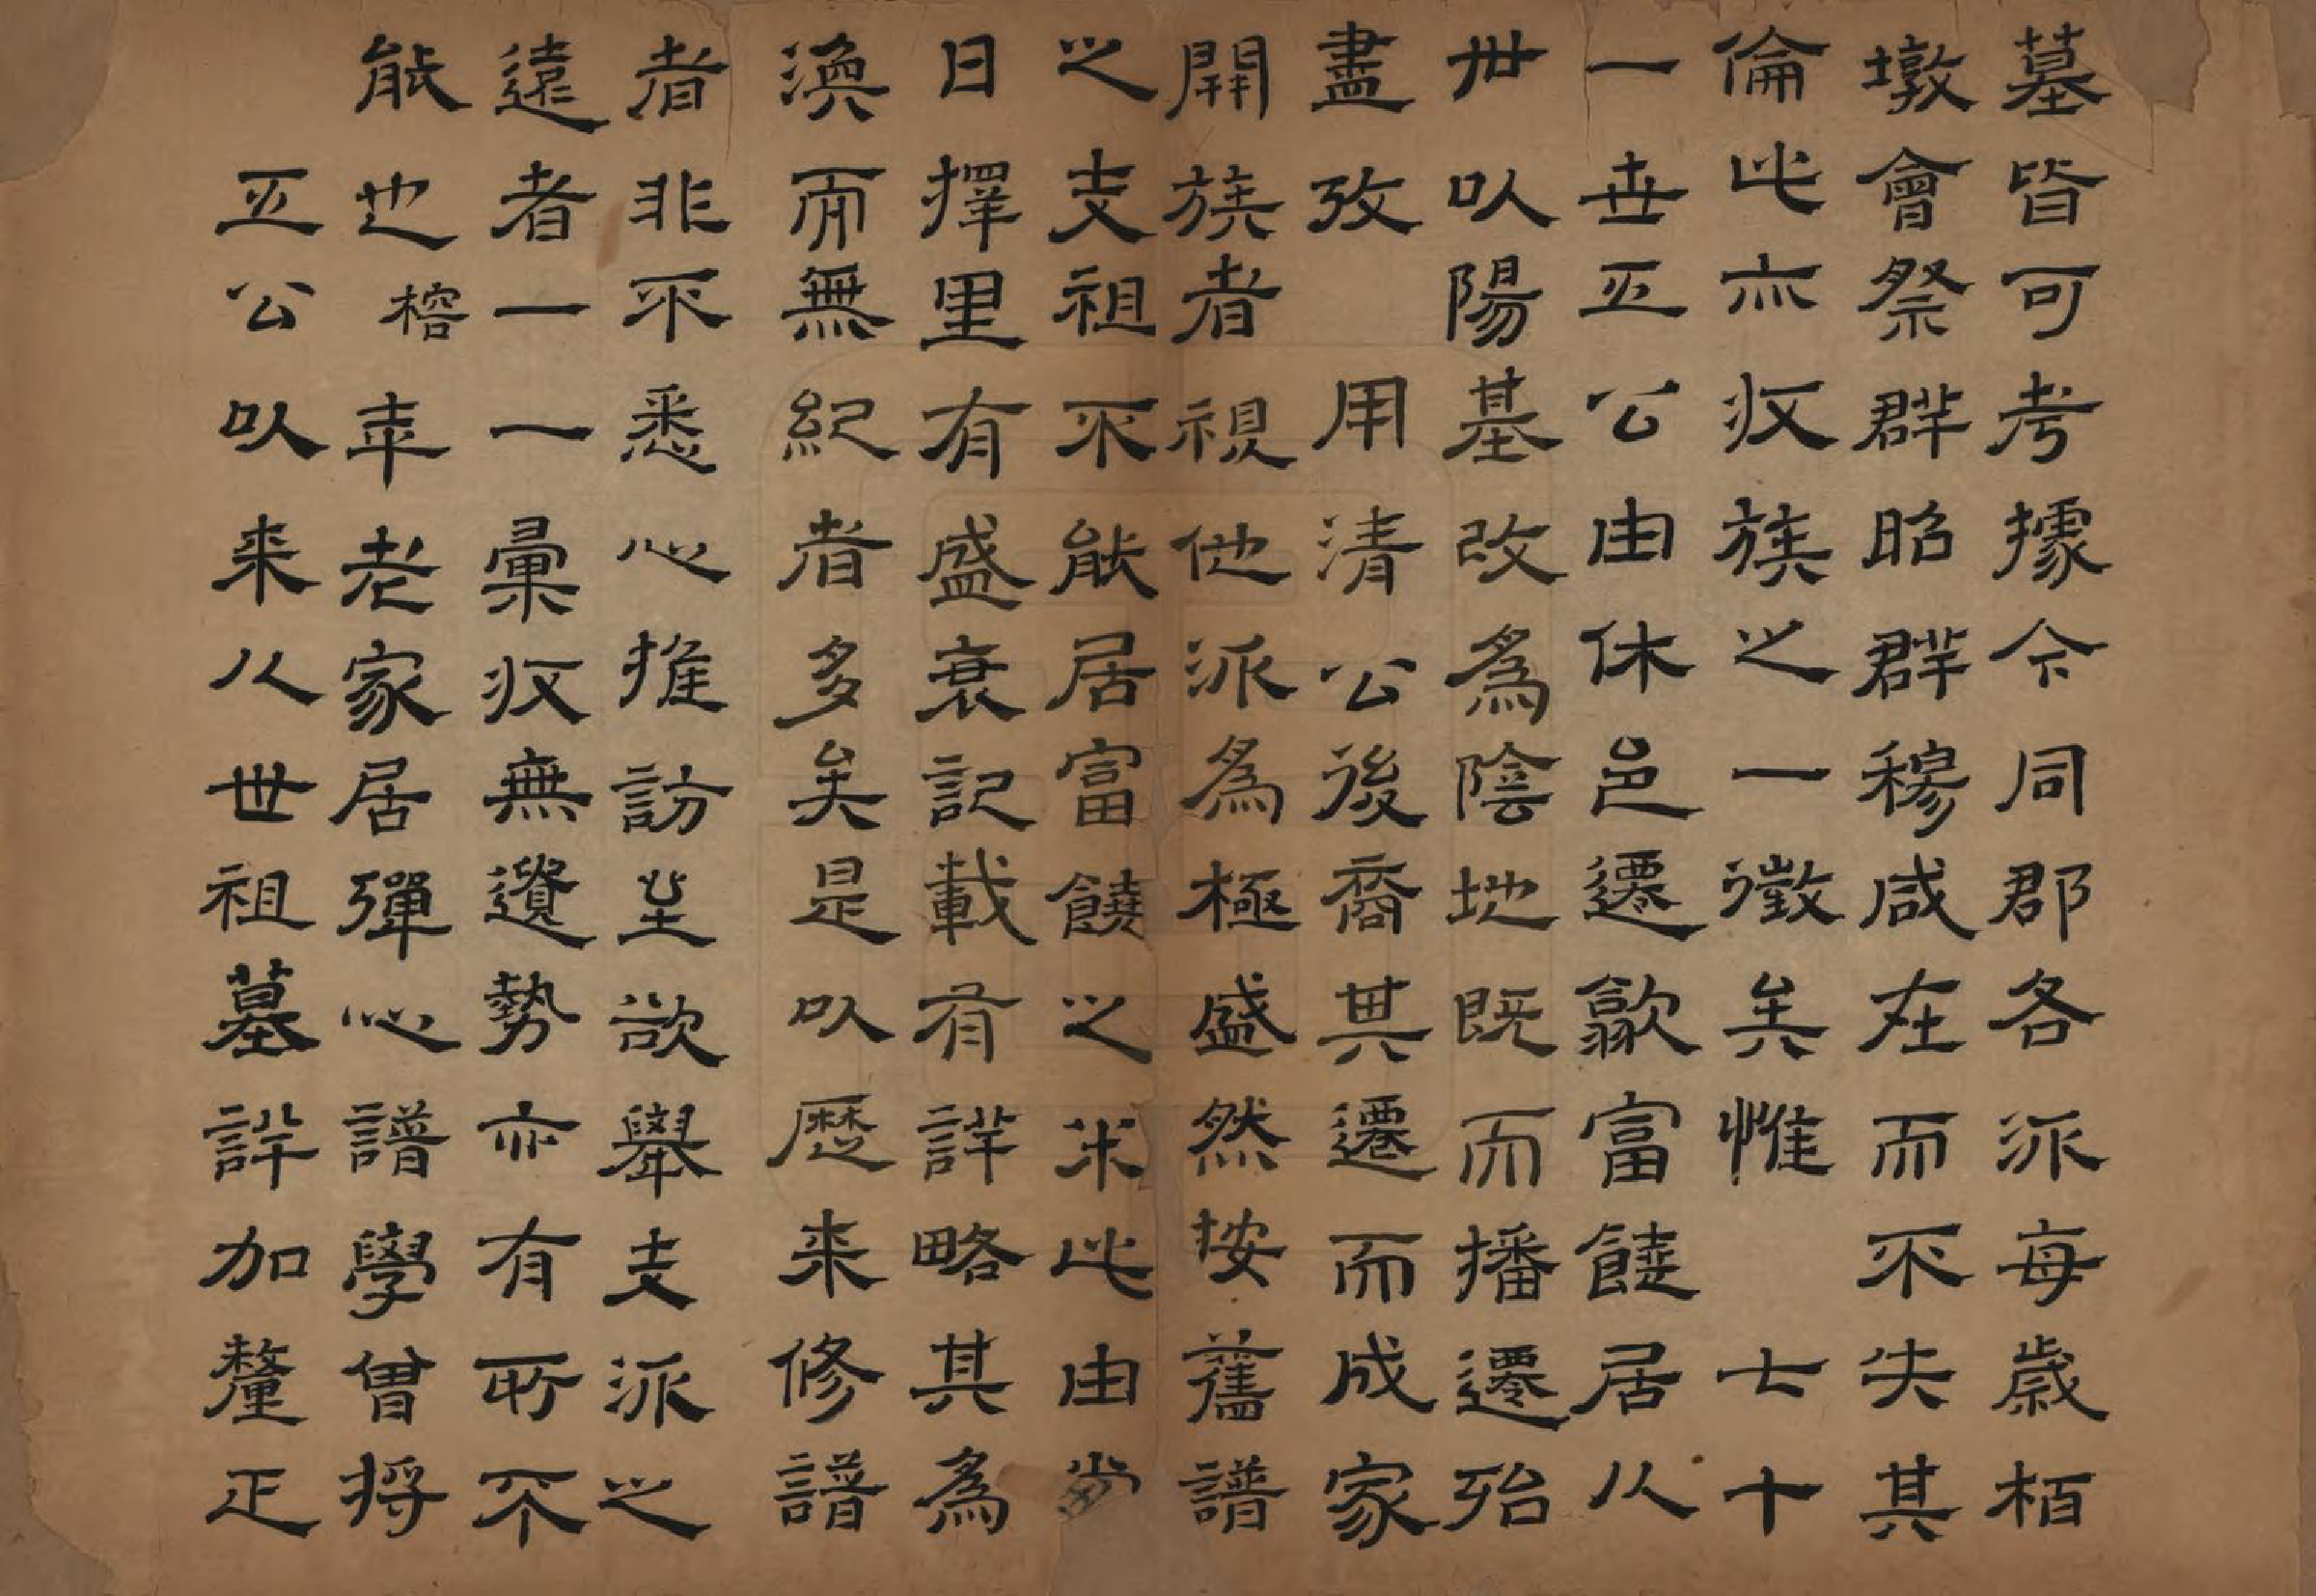 墓皆可考據今同郡各派每歲栢
墩會祭群昭群穆咸在而不失其
倫此亦收族之一徵矣惟 七十
一世正公由休邑遷歙富饒居八
世以陽基改為陰地既而播遷殆
盡攷 用清公後裔其遷而成家
開族者視他派為極盛然按舊譜
之支祖不能居富饒之 此由當
日擇里有盛衰記載有詳略其為
渙而無紀者多矣是以歷来修譜
者非不悉心推訪 欲舉支派之
遠者一一彙收無遺勢亦有所不
能也榕年老家居殫心譜學曾將
正公以来八世祖墓詳加釐正